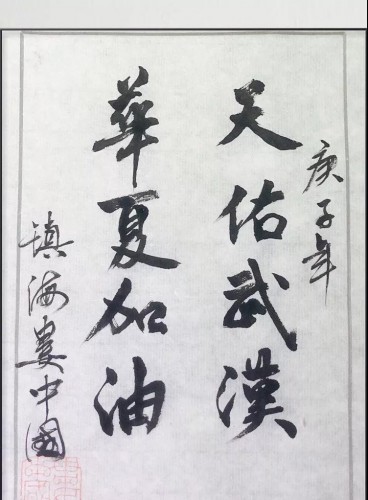 庚子年
天佑武漢
華夏加油
鎮海婁中國